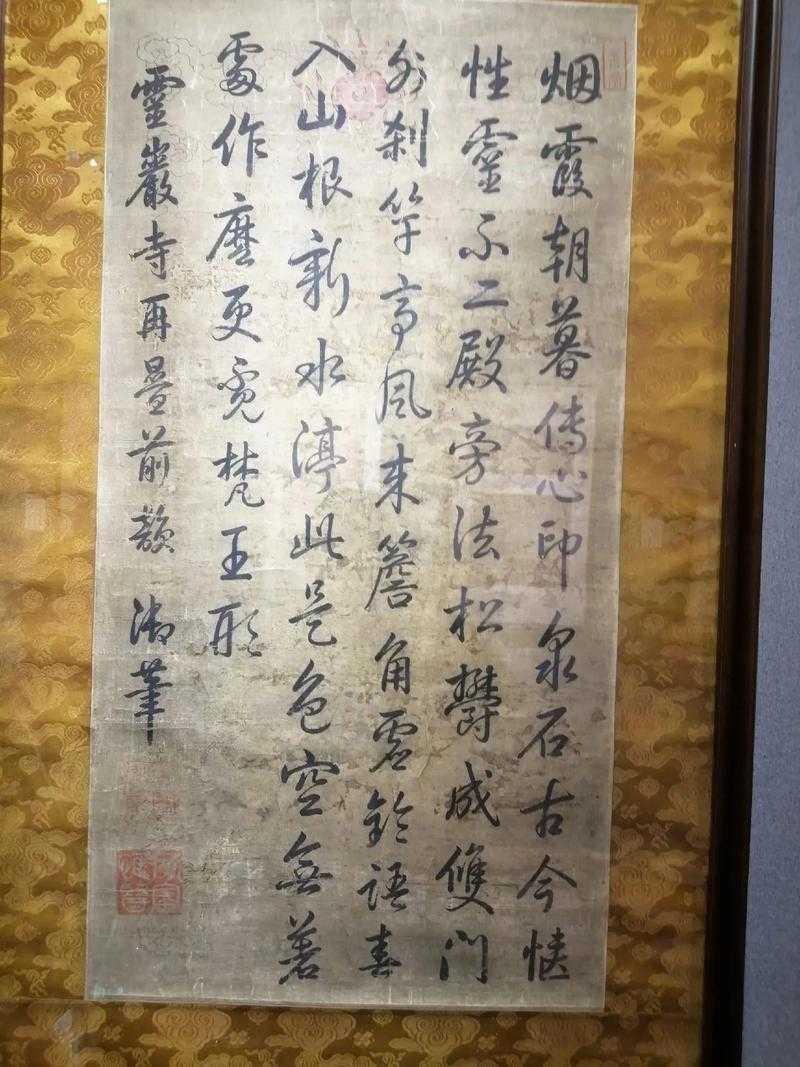 烟霞朝暮傳心印泉石古今惬
性靈不二殿旁法松鬱成雙門
外刹竿亭風来簷角虚鈴語春
入山根新水渟此是色空無著
處作麽更覔梵王形
靈巖寺再疊前韻 御筆